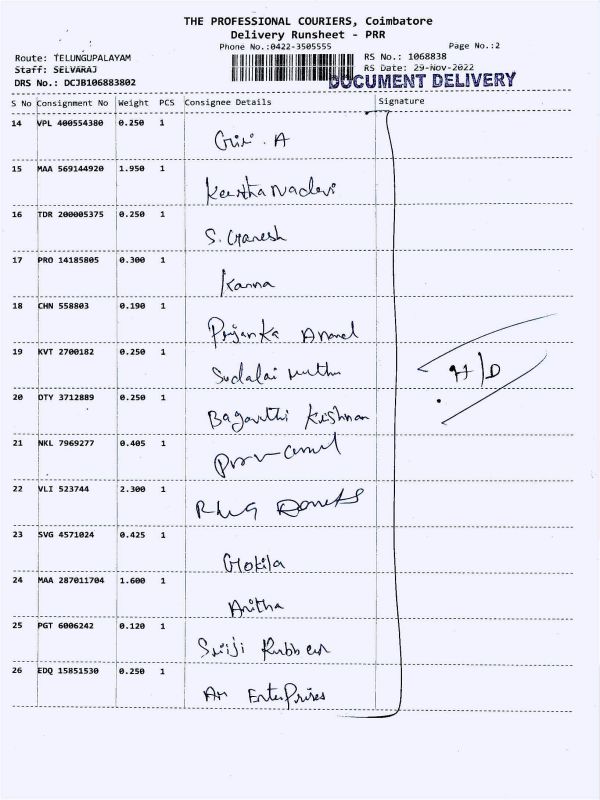 THE PROFESSIONAL COURIERS, Coimbatore
Delivery Runsheet - PRR
Phone No.:0422-3505555
Page No.:2
Route: TELUNGUPALAYAM
RS No.: 1068838
Staff: SELVARAJ
RS Date: 29-Nov-2022
DRS No.: DCJB106883802
DOCUMENT DELIVERY
S No Consignment No Weight PCS Consignee Details Signature
14 VPL 400554380 0.250 1
Giri . A
15 MAA 569144920 1.950 1
Keerthanadevi
16 TDR 200005375 0.250 1
S. Ganesh
17 PRO 14185805 0.300 1
Kanna
18 CHN 558803 0.190 1
Priyanka Anand
19 KVT 2700182 0.250 1
Sudalai muthu
H/D
20 OTY 3712889 0.250 1
Bagavthi Krishnan
21 NKL 7969277 0.405 1
22 VLI 523744 2.300 1
23 SVG 4571024 0.425 1
Gokila
24 MAA 287011704 1.600 1
Anitha
25 PGT 6006242 0.120 1
Sriji Rubber
26 EDQ 15851530 0.250 1
AM EnterPrises